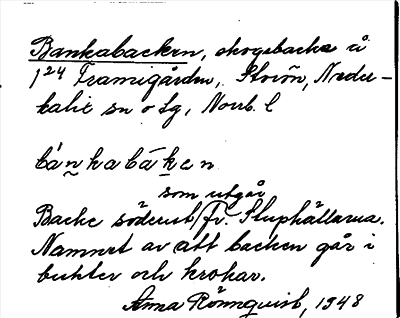 Bankabacken, skogsbacke å
1²⁴ Framigården, Storön, Neder-
kalix sn o tg, Norrb. l
bánkabàken
som utgår
Backe söderut/fr. Sluphällarna.
Namnet av att backen går i
bukter och krokar.
Anna Rönnquist, 1948